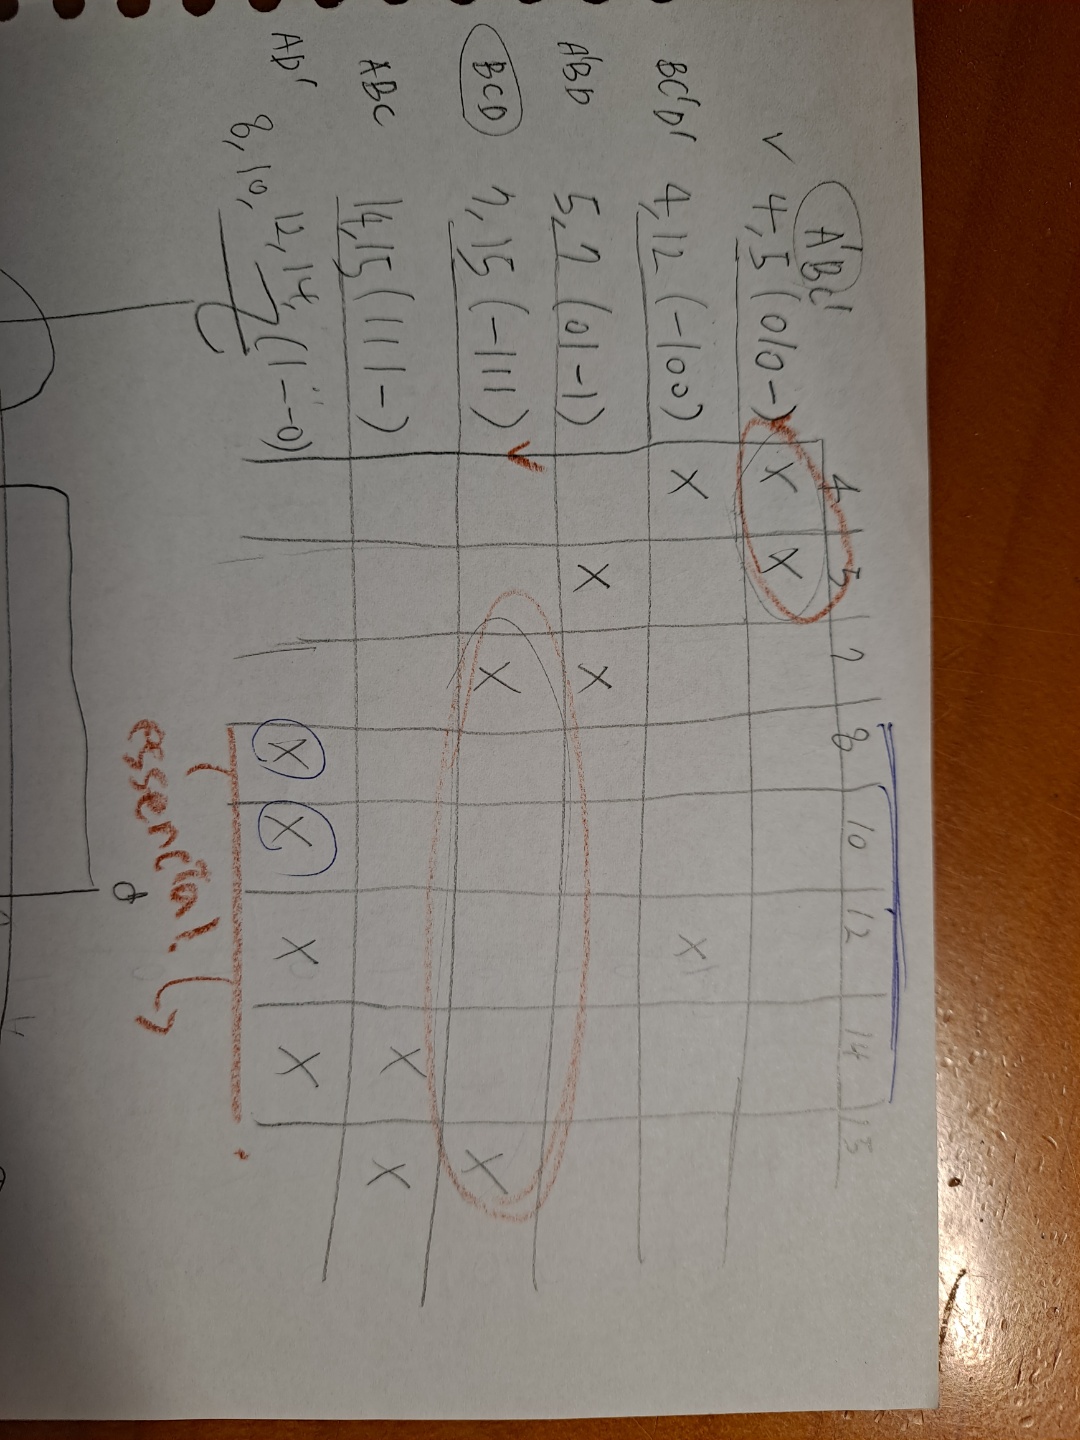 4 5 7 8 10 12 14 15
A'BC'
✓ 4,5 (010-) X X
BC'D' 4,12 (-100) X X
A'BD 5,7 (01-1) X X
BCD 7,15 (-111) ✓ X X
ABC 14,15 (111-) X X
AD' 8,10,
12,14, (1--0) X X X X
essencial.